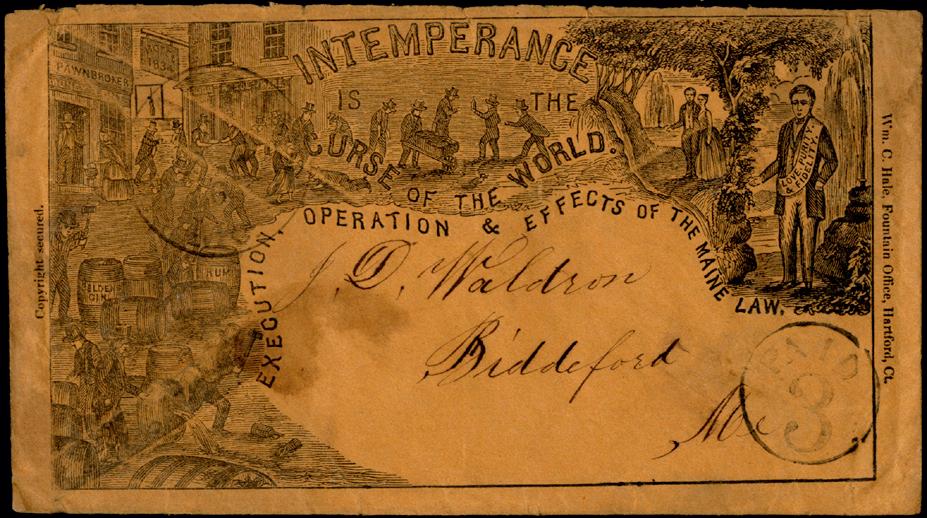 INTEMPERANCE
IS THE
CURSE OF THE WORLD.
EXECUTION, OPERATION & EFFECTS OF THE MAINE LAW.
PAWNBROKER
1834
RUM
GIN
LOVE, PURITY,
& FIDELITY.
J. D. Waldron
Biddeford
Me
PAID
3
Copyright secured.
Wm. C. Hale, Fountain Office, Hartford, Ct.